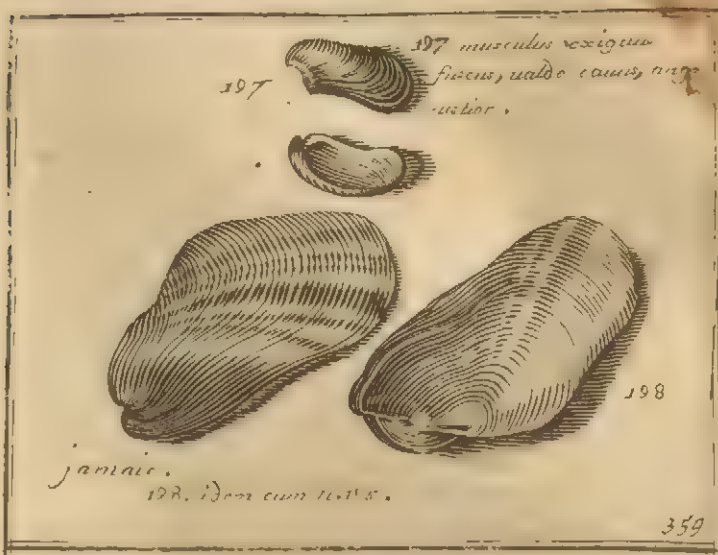 197
197 musculus exiguus
fuscus, ualde cauus, ang
ustior.
198
jamaic.
198. idem cum n.
359